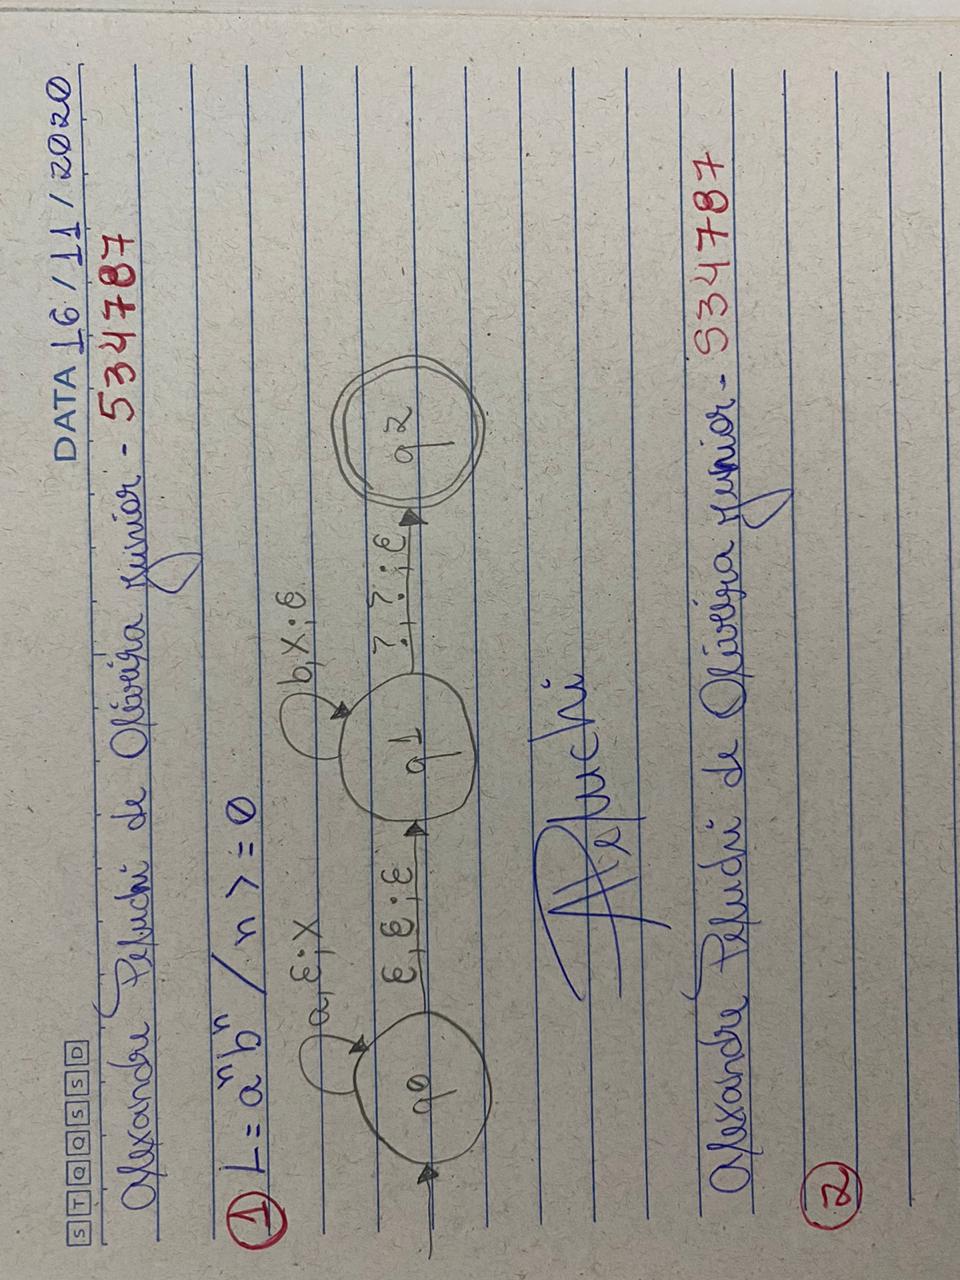 S T Q Q S S D DATA 16/11/2020
Alexandre Peluchi de Oliveira Junior - 534787
1 L = aⁿbⁿ / n >= 0
a, ε; X b, X; ε
q0 ε, ε; ε q1 ?, ?; ε q2
APeluchi
Alexandre Peluchi de Oliveira Junior - 534787
2